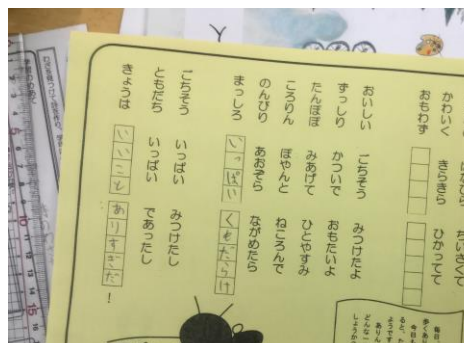 ちいさくて
かわいく　きらきら　ひかってて
おもわず
おいしい　ごちそう　みつけたよ
ずっしり　かついで　おもたいよ
たんぽぽ　みあげて　ひとやすみ
ころりん　ぽやんと　ねころんで
のんびり　あおぞら　ながめたら
まっしろ　いっぱい　くもだらけ
ごちそう　いっぱい　みつけたし
ともだち　いっぱい　であったし
きょうは　いいこと　ありすぎだ！
毎日、
多くあり
今日も
ると、た
ようです。
ありん
どんな一
しょうか